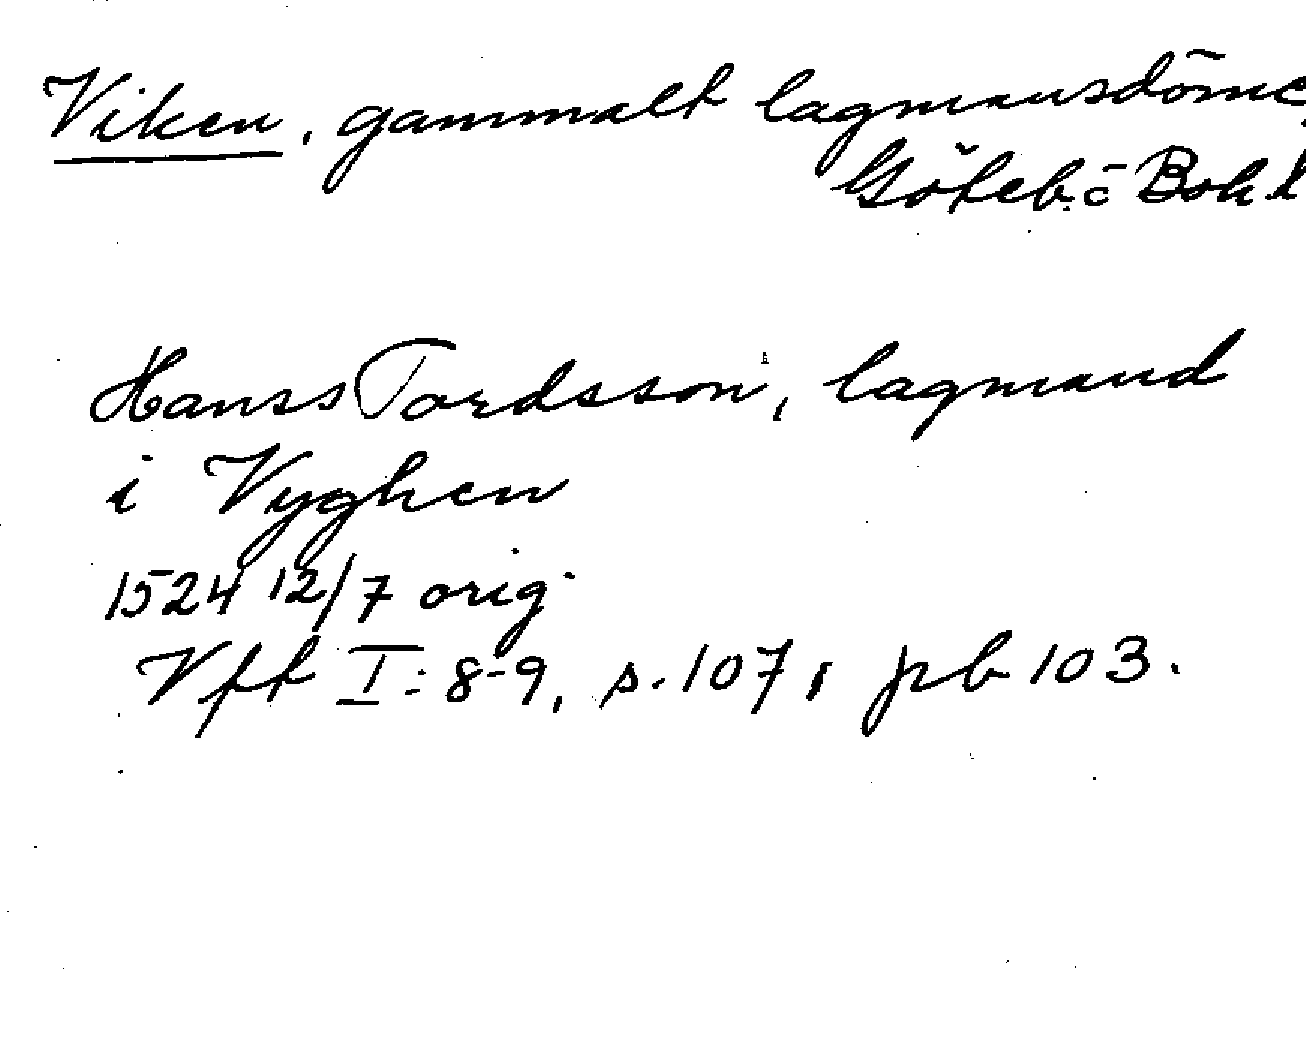 Viken, gammalt lagmansdöme,
Göteb. o Boh l
Hanss Tordsson, lagmand
i Vyghen
1524 12/7 orig.
Vft I: 8-9, s. 107, pb 103.